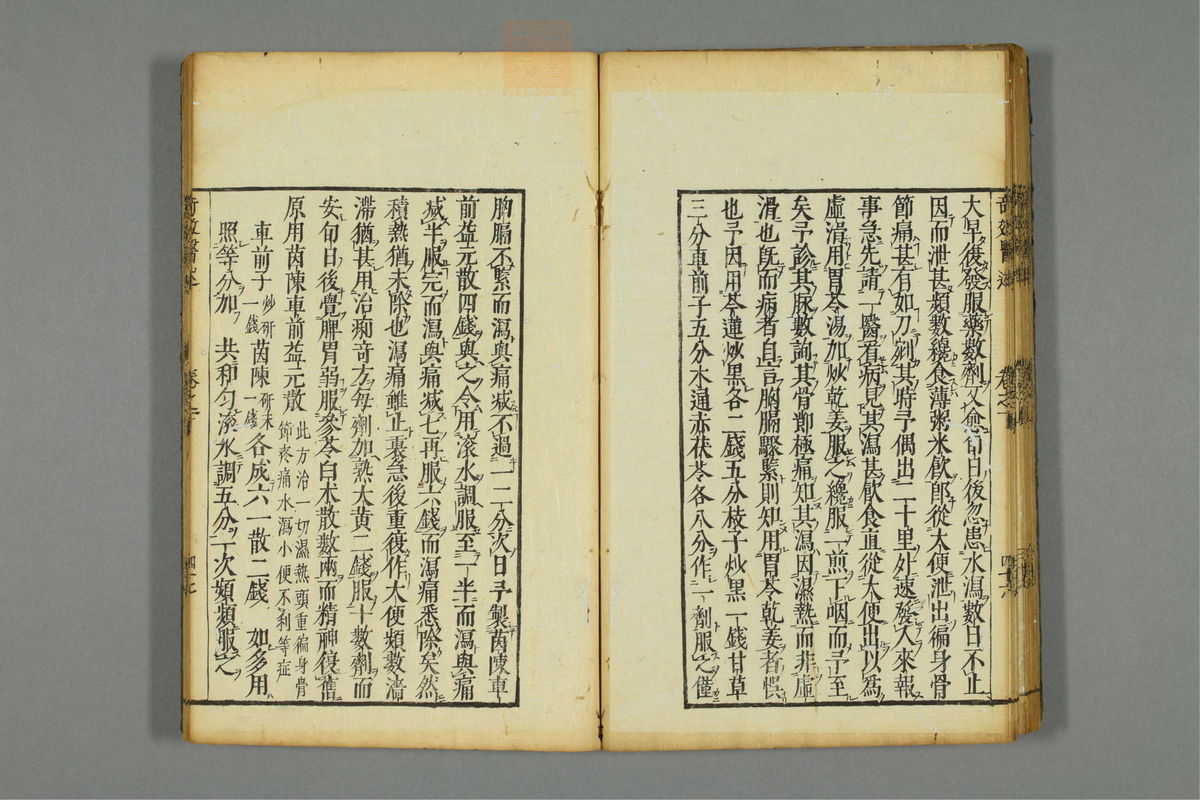 大早復發服藥數劑又愈旬日後忽患水瀉數日不止
因而泄甚頻數纔食薄粥米飲即從大便泄出徧身骨
節痛甚有如刀剜其時予偶出二十里外速發人來報
事急先請一醫看病見其瀉甚飲食直從大便出以爲
虛滑用胃苓湯加炒乾姜服之纔服一煎下咽而予至
矣予診其脉數詢其骨節極痛知其瀉因濕熱而非虛
滑也既而病者自言胸膈驟緊則知用胃苓乾姜者悞
也予因用芩連炒黑各二錢五分枝子炒黑一錢甘草
三分車前子五分木通赤茯苓各八分作一劑服之僅
胸膈不緊而瀉與痛減不過一二分次日予製茵陳車
前益元散四錢與之令用滚水調服至一半而瀉與痛
減半服完而瀉與痛減七再服六錢而瀉痛悉除矣然
積熱猶未除也瀉痛雖止裏急後重復作大便頻數濇
滯猶甚用治痢竒方每劑加熟大黄二錢服十數劑而
安旬日後覺脾胃弱服參苓白术散數兩而精神復舊
原用茵陳車前益元散 此方治一切濕熱頭重徧身骨
節疼痛水瀉小便不利等症
車前子 炒研一錢 茵陳 研末一錢 各成六一散二錢 如多用
照等分加 共和匀滚水調五分一次頻頻服之
竒效醫述 卷之一 四十六
卷之一 四十七